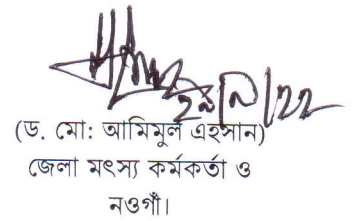 ২৯/৯/২২
(ড. মো: আমিমুল এহসান)
জেলা মৎস্য কর্মকর্তা ও
নওগাঁ।